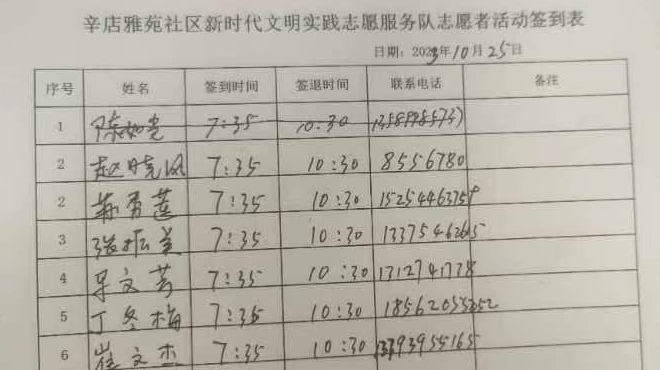 辛店雅苑社区新时代文明实践志愿服务队志愿者活动签到表
日期：2023年10月25日
序号 姓名 签到时间 签退时间 联系电话 备注
1 陈如光 7:35 10:30
2 赵晓风 7:35 10:30 8556780
2 7:35 10:30
3 张振美 7:35 10:30
4 文芳 7:35 10:30 1312741778
5 丁冬梅 7:35 10:30
6 崔文杰 7:35 10:30